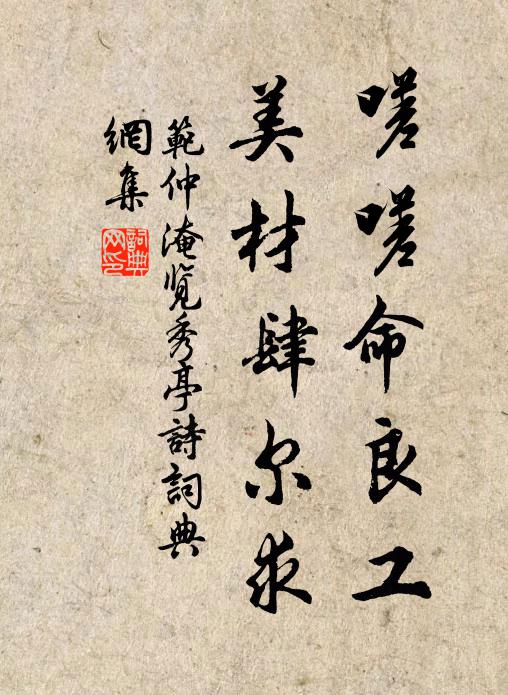 嗟嗟命良工
美材肆尔求
範仲淹览秀亭詩詞典
網集
詞典
网印